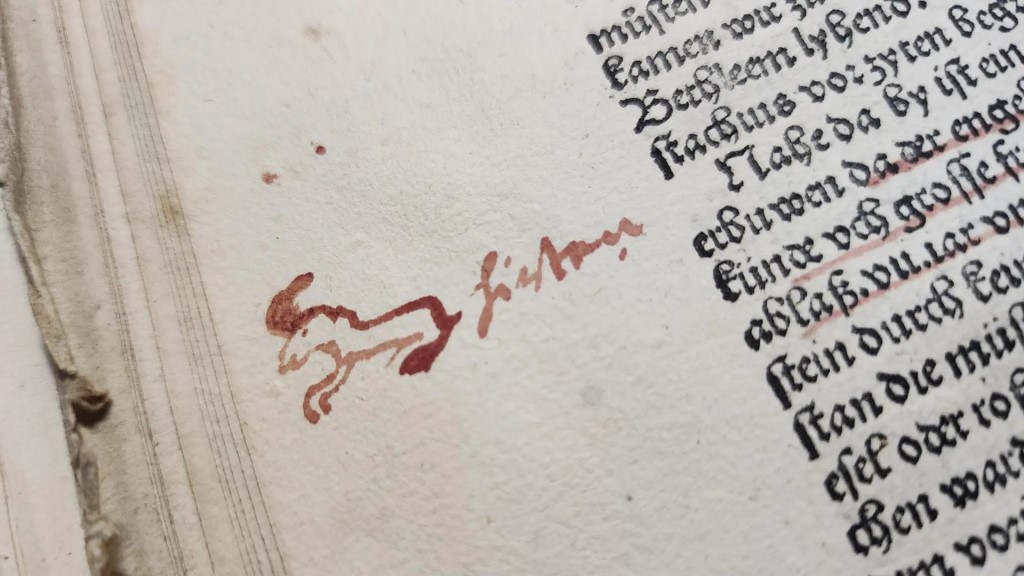 hirten
müsten
kamen wir zů
Bethleem lyhend.
stachius vor zyten begr
Nahe da by ist ein
erbuwen da der engel
künde vch grosse fr
ablaß. vij. iar vn
stein durch
stan die müß
esel oder roß
chen ward
vor